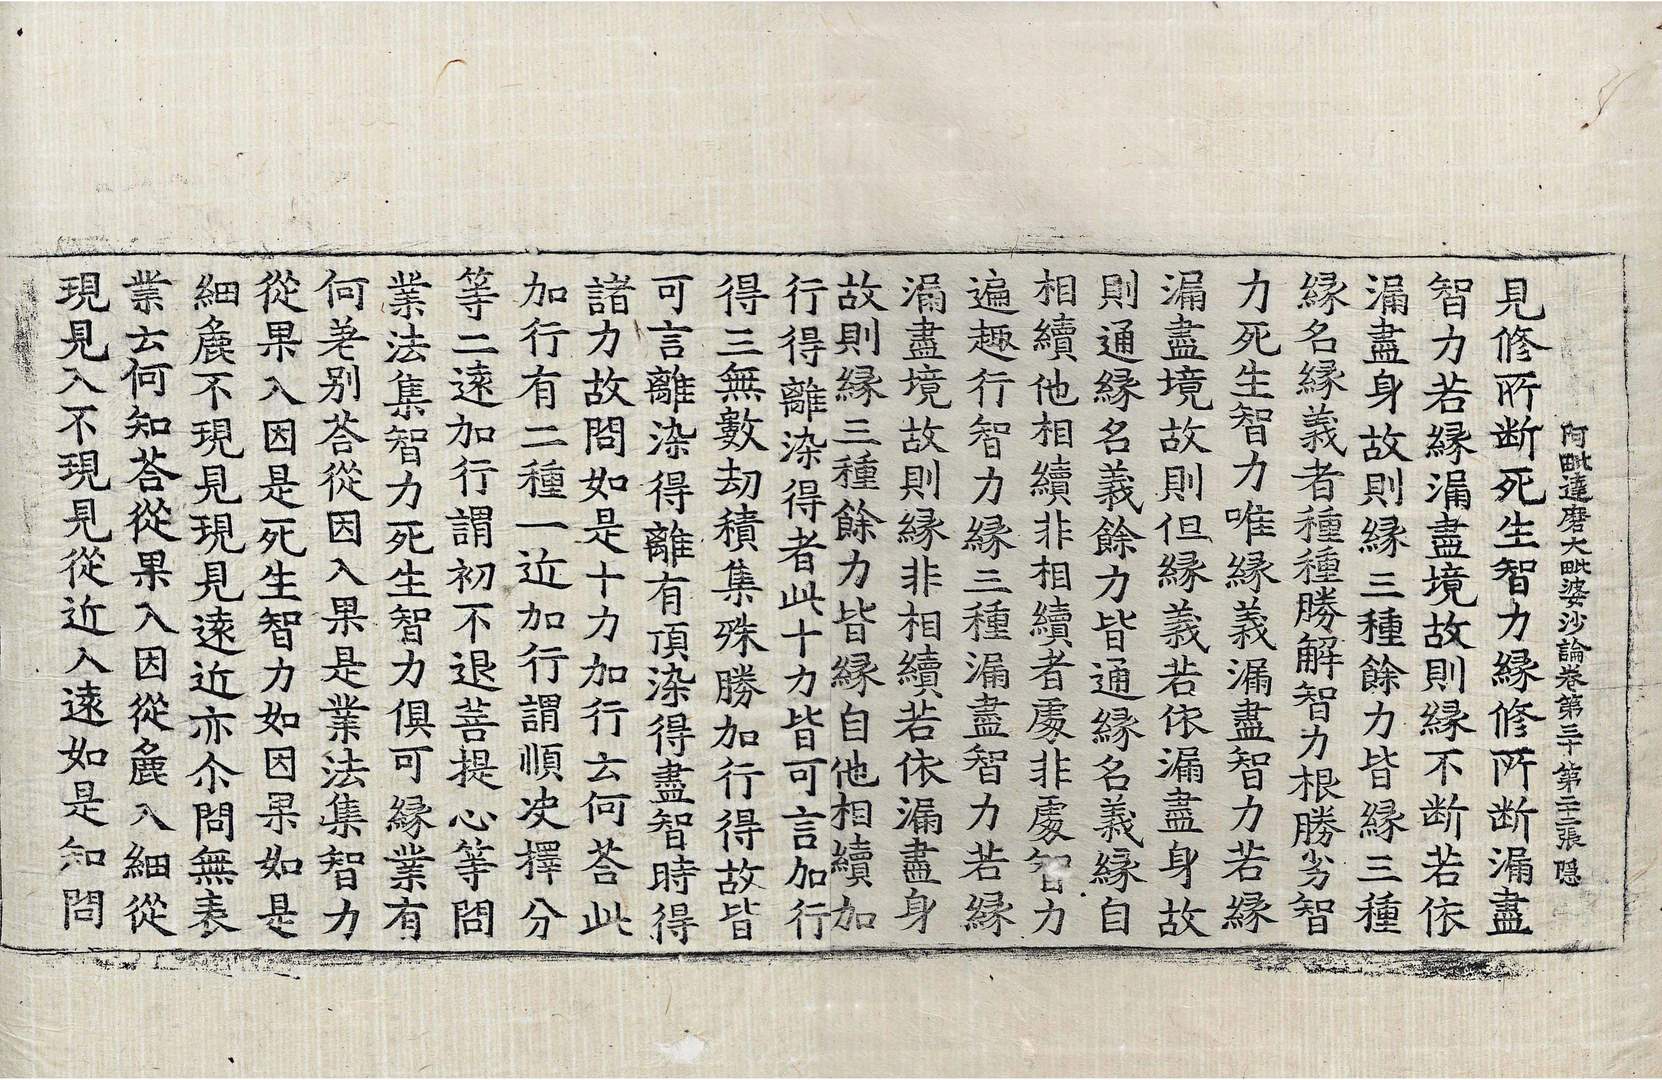 阿毗達磨大毗婆沙論卷第三十 第 張 隱
見修所断死生智力縁修所断漏盡
智力若縁漏盡境故則縁不断若依
漏盡身故則縁三種餘力皆縁三種
縁名縁義者種種勝解智力根勝劣智
力死生智力唯縁義漏盡智力若縁
漏盡境故則但縁義若依漏盡身故
則通縁名義餘力皆通縁名義縁自
相續他相續非相續者處非處智力
遍趣行智力縁三種漏盡智力若縁
漏盡境故則縁非相續若依漏盡身
故則縁三種餘力皆縁自他相續加
行得離染得者此十力皆可言加行
得三無數劫積集殊勝加行得故皆
可言離染得離有頂染得盡智時得
諸力故問如是十力加行云何荅此
加行有二種一近加行謂順决擇分
等二遠加行謂初不退菩提心等問
業法集智力死生智力俱可縁業有
何差别荅從因入果是業法集智力
從果入因是死生智力如因果如是
細麁不現見現見遠近亦尒問無表
業云何知荅從果入因從麁入細從
現見入不現見從近入遠如是知問